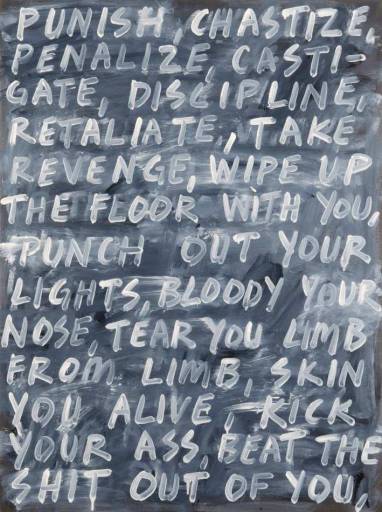 PUNISH, CHASTIZE,
PENALIZE, CASTI-
GATE, DISCIPLINE,
RETALIATE, TAKE
REVENGE, WIPE UP
THE FLOOR WITH YOU,
PUNCH OUT YOUR
LIGHTS, BLOODY YOUR
NOSE, TEAR YOU LIMB
FROM LIMB, SKIN
YOU ALIVE, KICK
YOUR ASS, BEAT THE
SHIT OUT OF YOU,